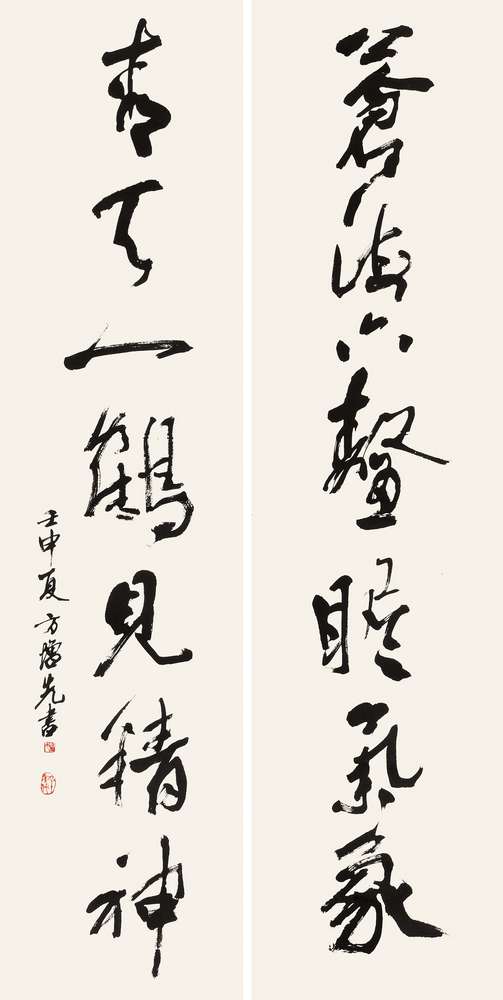 蒼海六鼇瞻氣象
青天一鶴見精神
壬申夏方增先書